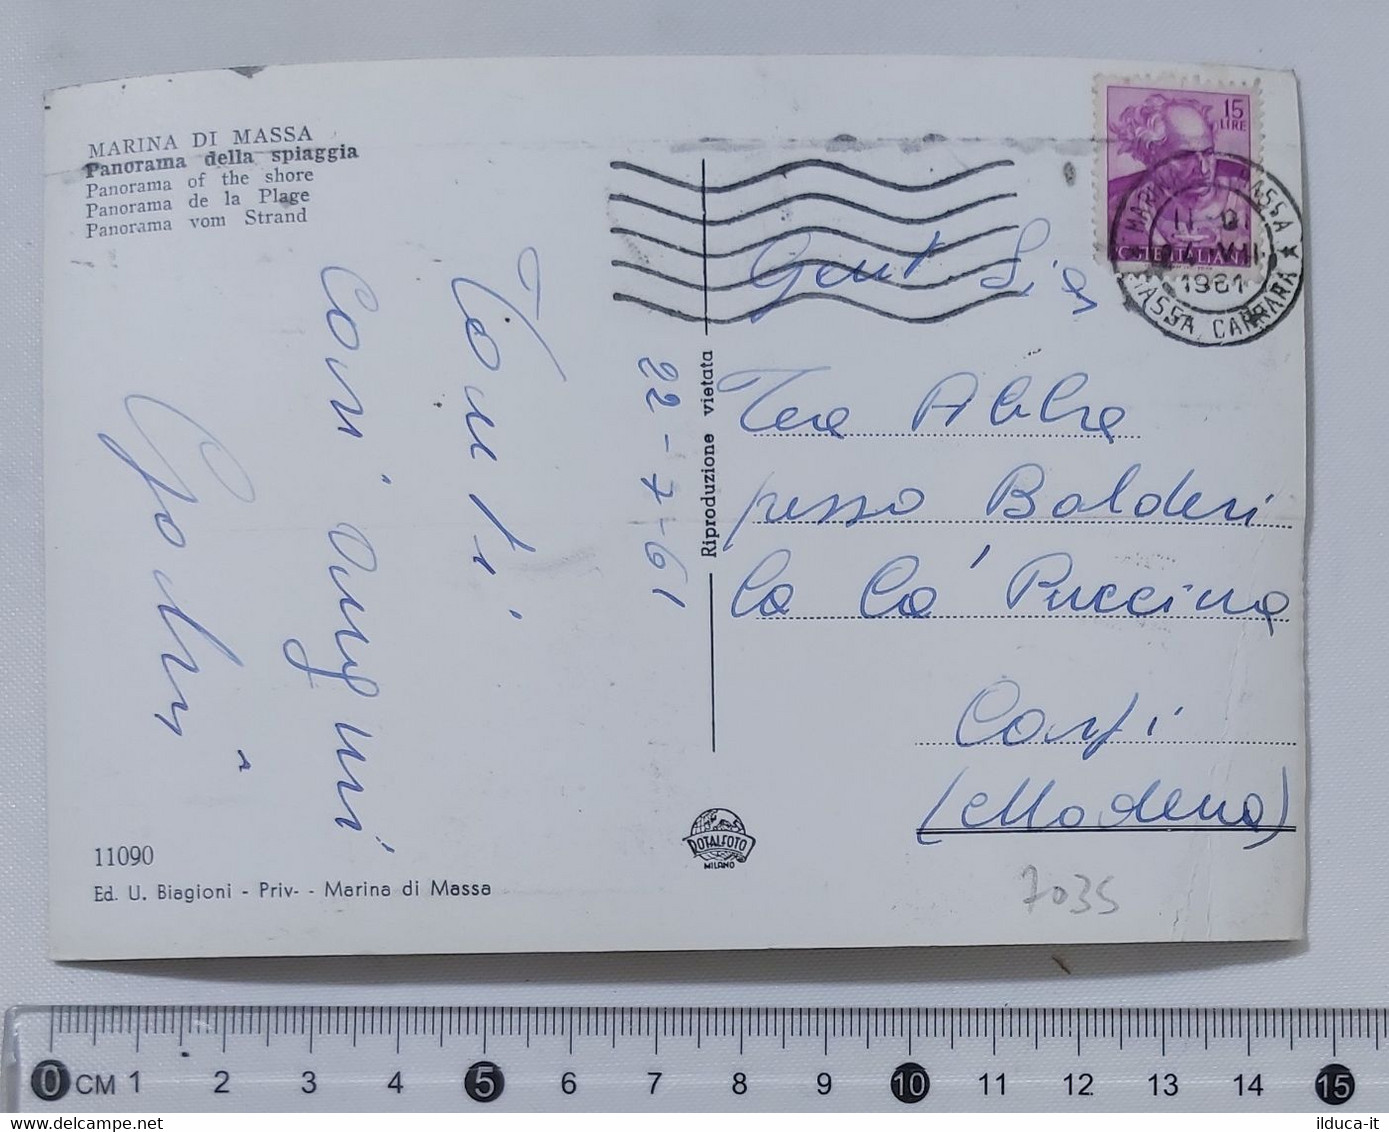 MARINA DI MASSA
Panorama della spiaggia
Panorama of the shore
Panorama de la Plage
Panorama vom Strand
Tanti
Cari Auguri
22-7-61
11090
Ed. U. Biagioni - Priv- - Marina di Massa
Riproduzione vietata
ROTALFOTO
MILANO
15
LIRE
POSTE ITALIANE
MARINA DI MASSA
1961
MASSA CARRARA
Gent Sig
presso Balderi
Carpi
(Modena)
7035
0 CM 1 2 3 4 5 6 7 8 9 10 11 12 13 14 15
www.delcampe.net
ilduca-it